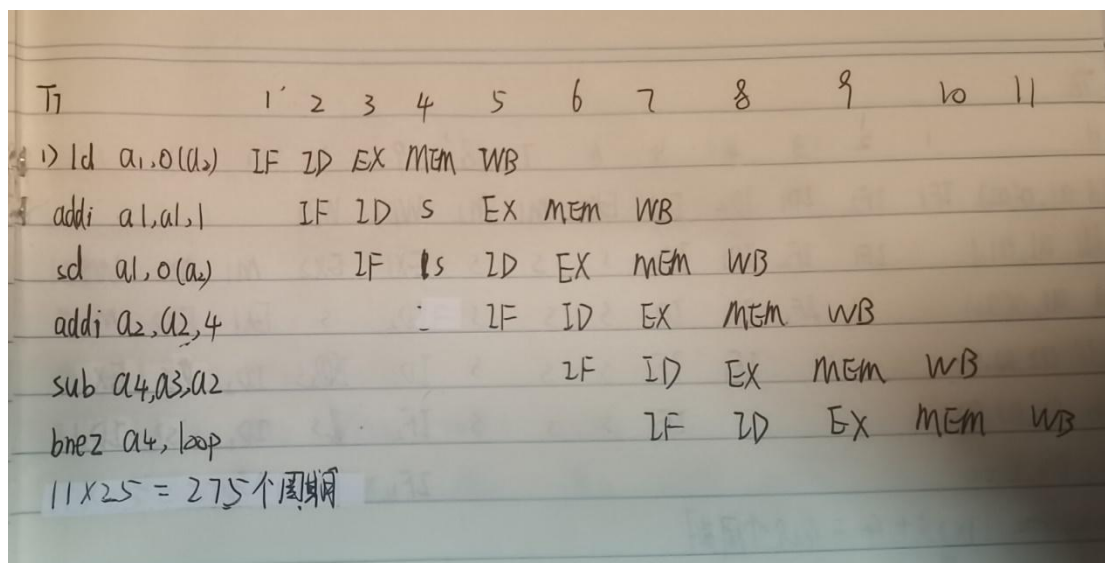 T1 1 2 3 4 5 6 7 8 9 10 11
1) ld a1,0(a2) IF ID EX MEM WB
addi a1,a1,1 IF ID S EX MEM WB
sd a1,0(a2) IF S ID EX MEM WB
addi a2,a2,4 IF ID EX MEM WB
sub a4,a3,a2 IF ID EX MEM WB
bnez a4,loop IF ID EX MEM WB
11×25=275个周期